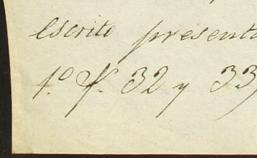 escrito present
1.º f.s 32 y 33